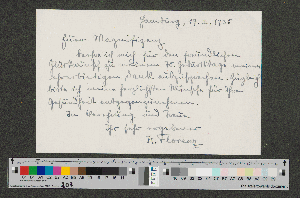 Hamburg, 19.2.1935
Eure Magnifizenz,
darf ich mich für den freundlichen
Glückwunsch zu meinem 70. Geburtstage meinen
ehrerbietigen Dank auszusprechen. Zugleich
bitte ich meine herzlichsten Wünsche für Ihre
Gesundheit entgegenzunehmen.
In Verehrung und Treue
Ihr sehr ergebener
K. Florenz